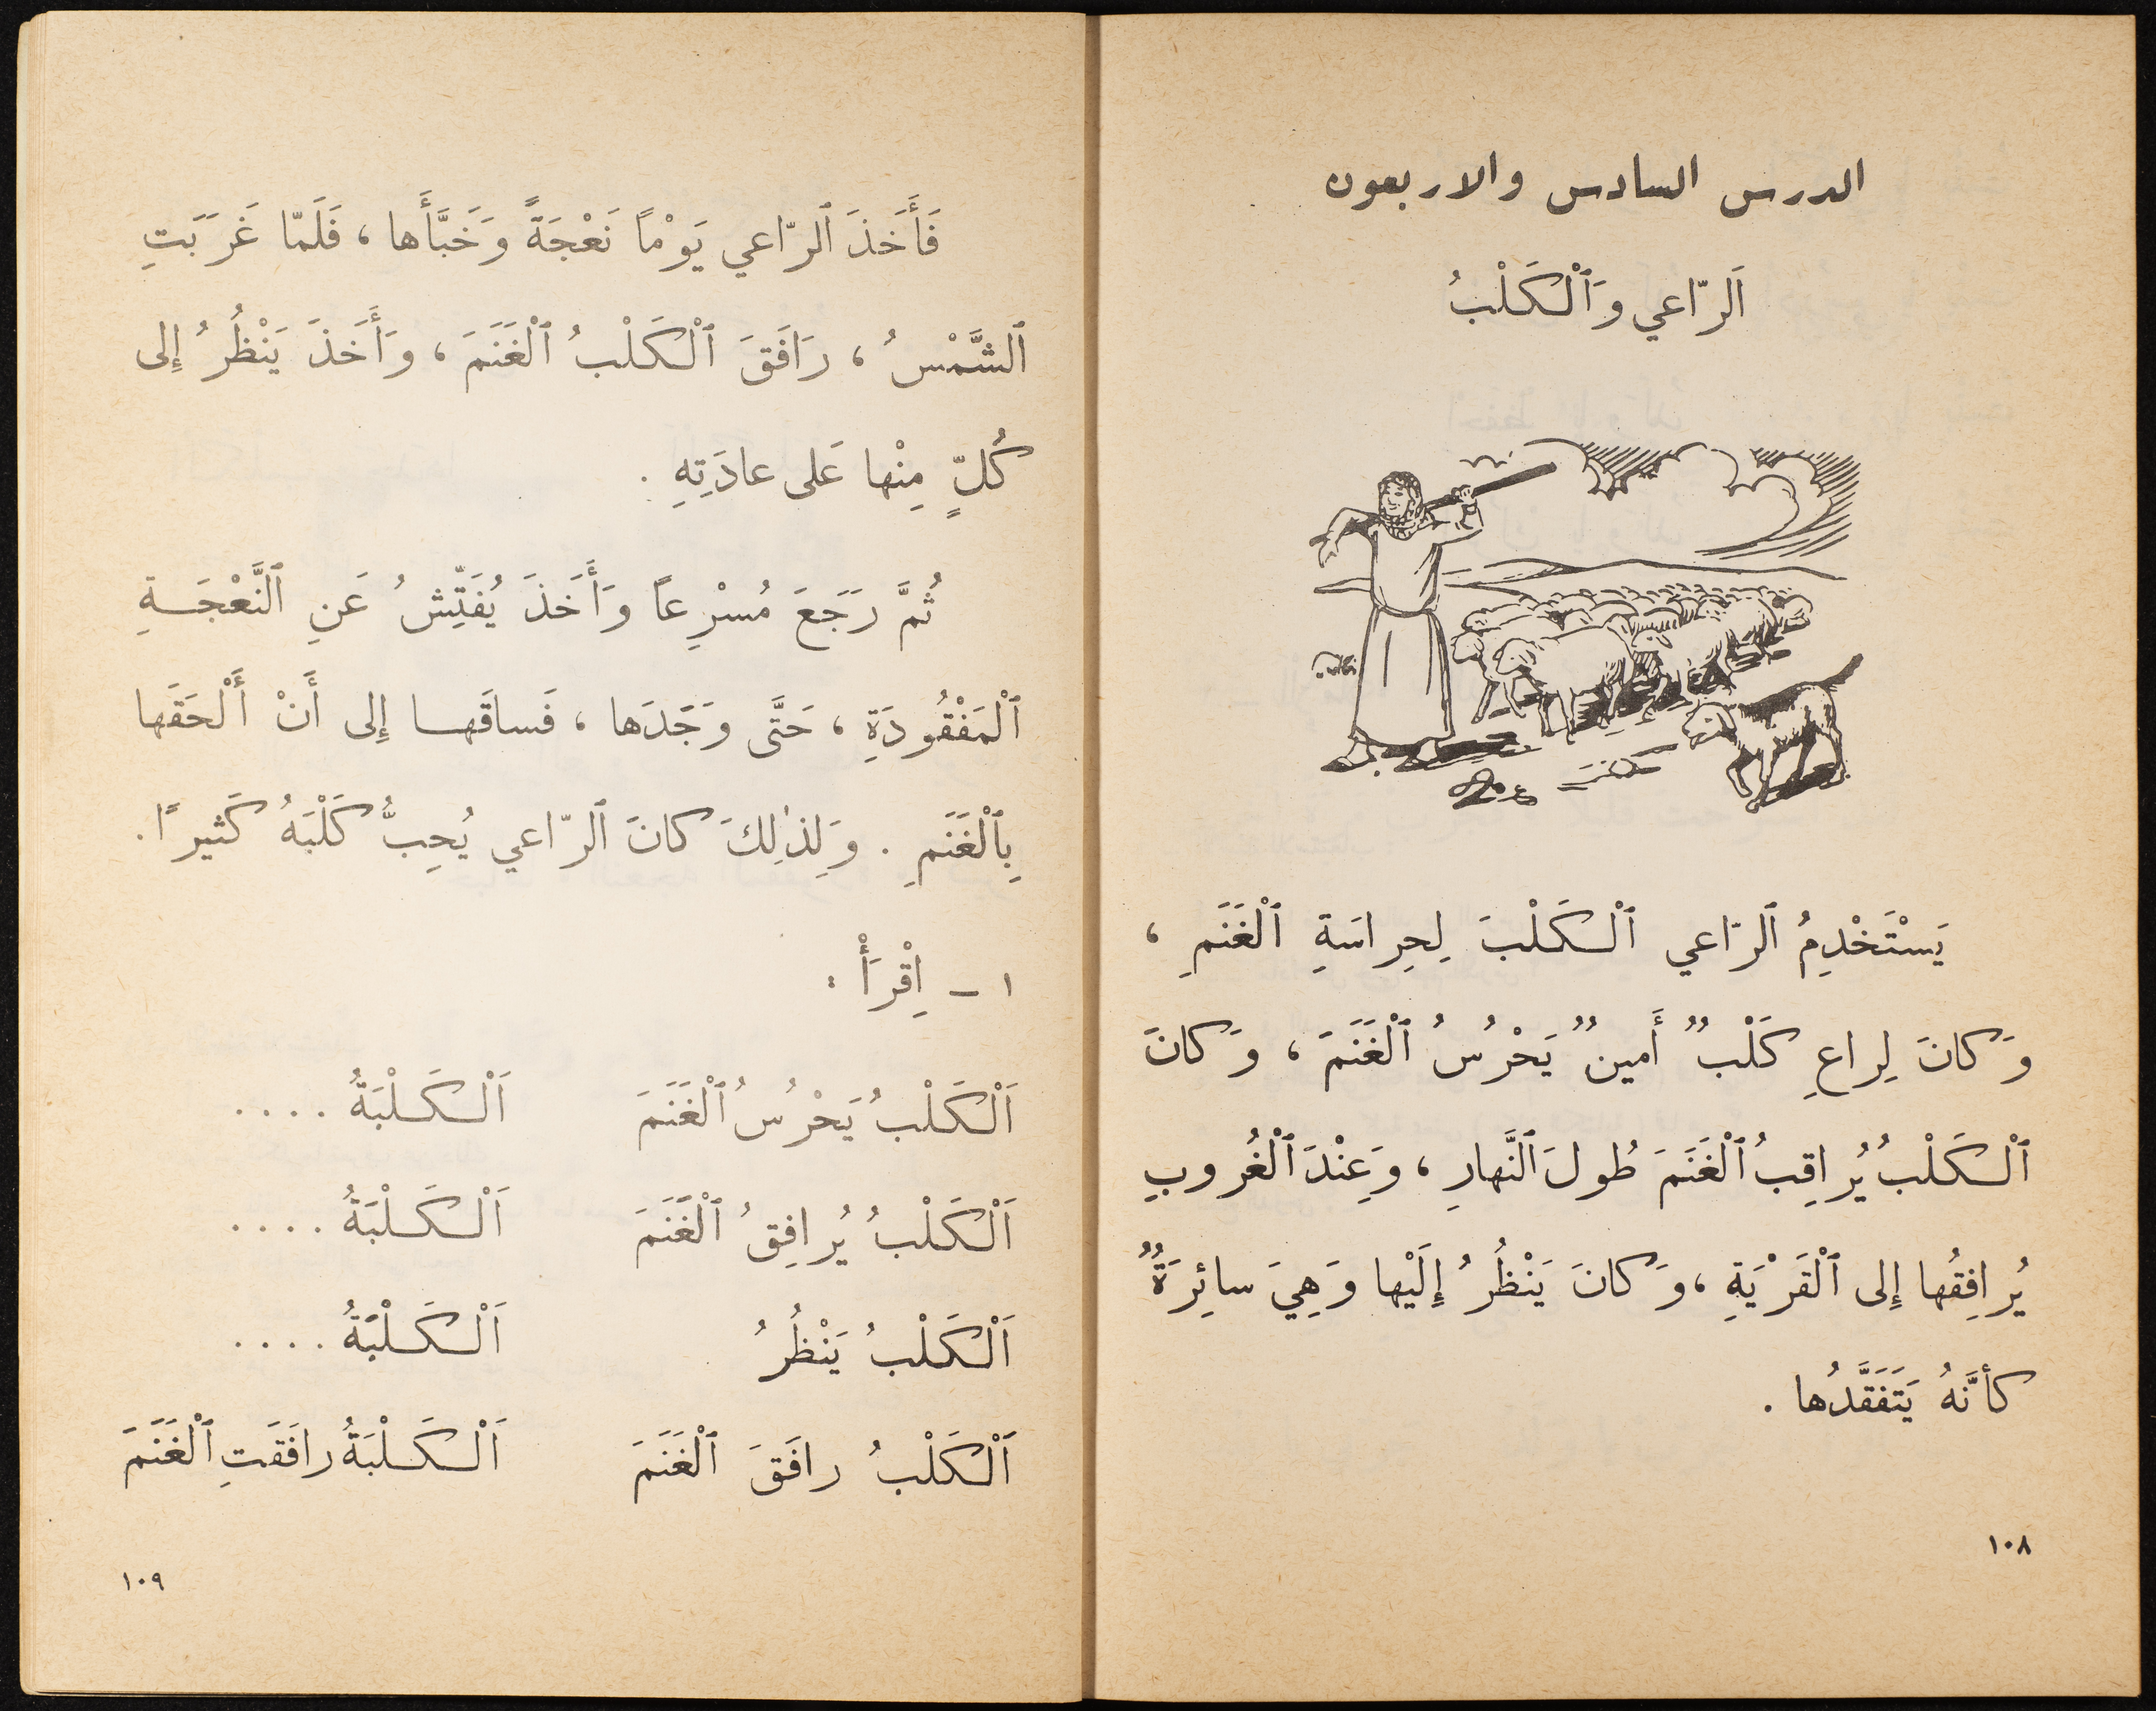 الدرس السادس والاربعون
اَلرّاعي وَٱلْكَلْبُ
يَسْتَخْدِمُ ٱلرّاعي ٱلْكَلْبَ لِحِراسَةِ ٱلْغَنَمِ ،
وَكانَ لِراعٍ كَلْبٌ أَمينٌ يَحْرُسُ ٱلْغَنَمَ ، وَكانَ
ٱلْكَلْبُ يُراقِبُ ٱلْغَنَمَ طُولَ ٱلنَّهارِ ، وَعِنْدَ ٱلْغُروبِ
يُرافِقُها إِلى ٱلْقَرْيَةِ ، وَكانَ يَنْظُرُ إِلَيْها وَهِيَ سائِرَةٌ
كأنَّهُ يَتَفَقَّدُها .
١٠٨
فَأَخَذَ ٱلرّاعي يَوْماً نَعْجَةً وَخَبَّأَها ، فَلَمّا غَرَبَتِ
ٱلشَّمْسُ ، رَافَقَ ٱلْكَلْبُ ٱلْغَنَمَ ، وَأَخَذَ يَنْظُرُ إِلى
كُلٍّ مِنْها عَلى عادَتِهِ .
ثُمَّ رَجَعَ مُسْرِعاً وَأَخَذَ يُفَتِّشُ عَنِ ٱلنَّعْجَةِ
ٱلْمَفْقُودَةِ ، حَتَّى وَجَدَها ، فَساقَها إِلى أَنْ أَلْحَقَها
بِٱلْغَنَمِ . وَلِذٰلِكَ كانَ ٱلرّاعي يُحِبُّ كَلْبَهُ كَثيراً .
١ ـ اِقْرَأْ :
اَلْكَلْبُ يَحْرُسُ ٱلْغَنَمَ اَلْكَلْبَةُ ....
اَلْكَلْبُ يُرافِقُ ٱلْغَنَمَ اَلْكَلْبَةُ ....
اَلْكَلْبُ يَنْظُرُ اَلْكَلْبَةُ ....
اَلْكَلْبُ رافَقَ ٱلْغَنَمَ اَلْكَلْبَةُ رافَقَتِ ٱلْغَنَمَ
١٠٩